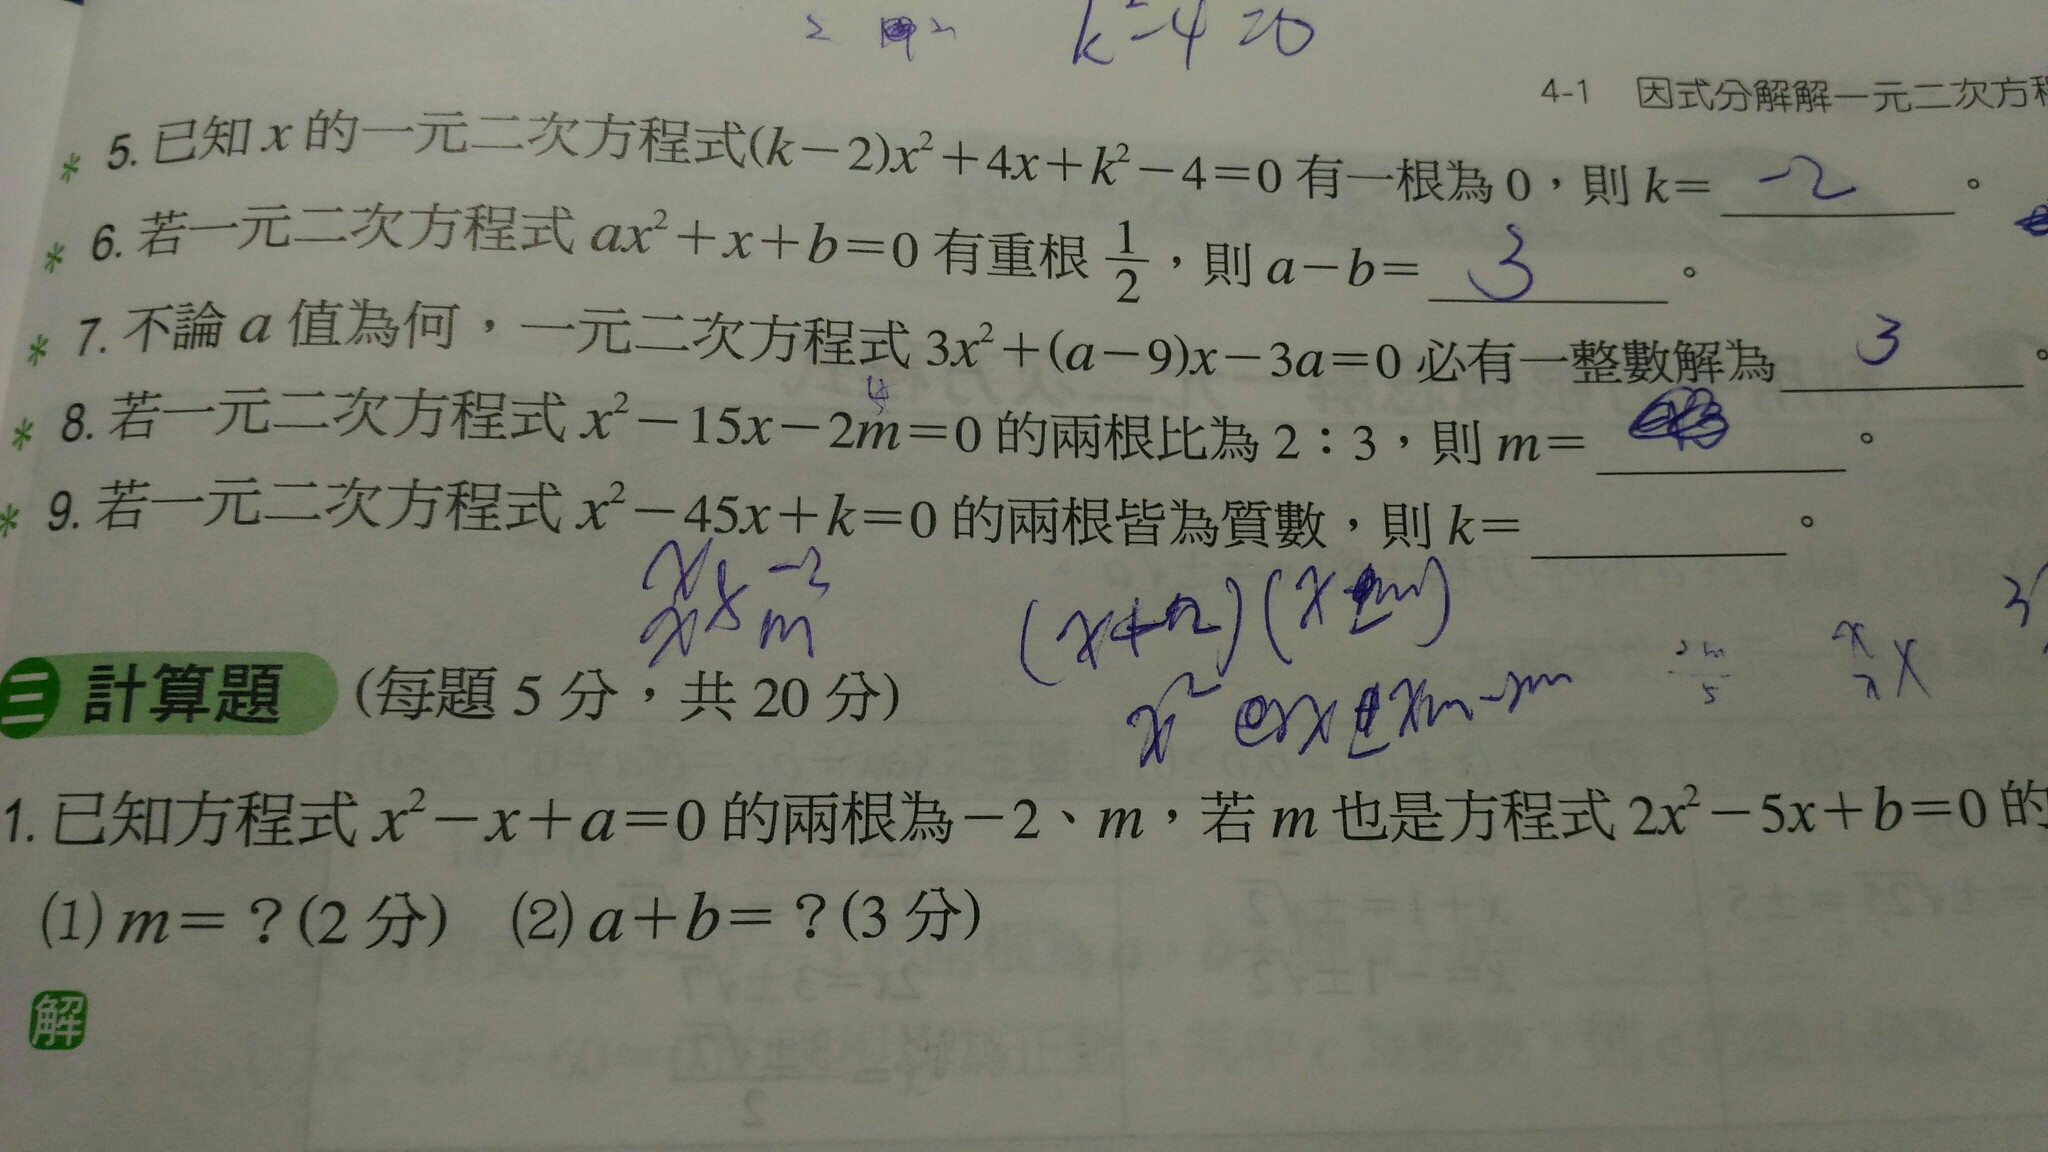 k²-4=0
4-1 因式分解解一元二次方
* 5. 已知 x 的一元二次方程式(k-2)x²+4x+k²-4=0 有一根為 0,則 k= -2 。
* 6. 若一元二次方程式 ax²+x+b=0 有重根 1/2,則 a-b= 3 。
* 7. 不論 a 值為何,一元二次方程式 3x²+(a-9)x-3a=0 必有一整數解為 3 。
* 8. 若一元二次方程式 x²-15x-2m=0 的兩根比為 2:3,則 m= 。
* 9. 若一元二次方程式 x²-45x+k=0 的兩根皆為質數,則 k= 。
x -2
x m
三 計算題 (每題 5 分,共 20 分)
1. 已知方程式 x²-x+a=0 的兩根為-2、m,若 m 也是方程式 2x²-5x+b=0 的
(1) m=?(2 分) (2) a+b=?(3 分)
解